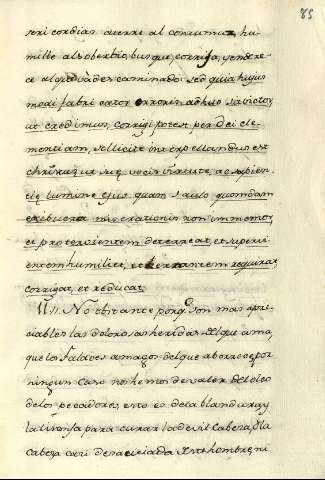 85
sericordias acerre al comun uz, ha-
mille al sobervio, busque, corrija, y endere-
ce al prediades caminado. sed quia hujus
modi fabricator erroris adhuc sabictor,
ut credimus, corrigi potest per Dei cle-
mentiam, sollicite interpellandus est
christus ut suę vocis virtute, ac sapien-
cię lumine ejus quam Saulo quondam
exibuerat miserationis non immemor,
et protervientem deterreat, et supervi-
entem humiliet, et errantem requirat,
corrigat, et reducat.
No obstante porq. son mas apre-
ciables las dolorosas heridas del que ama,
que los alagos del que aborrece, por
ningun caso nos hemos de valer del oleo
de los pecadores, esto es de la blandura y
la lisonja para curar la devil Cabeza, ó la
Cabeza casi desauciada de este hombre, ni